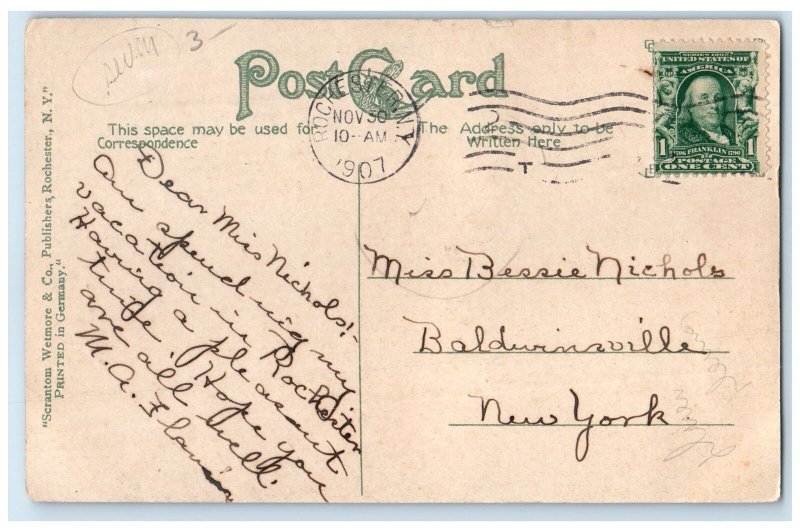 3-
Post Card
This space may be used for
Correspondence
The Address only to be
Written Here
ROCHESTER, N.Y.
NOV 30
10-AM
1907
SERIES 1902
UNITED STATES OF
AMERICA
1706 FRANKLIN 1790
1 POSTAGE 1
ONE CENT
"Scrantom Wetmore & Co., Publishers, Rochester, N. Y."
PRINTED in Germany."
Dear Miss Nichols:-
Am spending my
vacation in Rochester
Having a pleasant
time. Hope you
are all well.
M. A.
Miss Bessie Nichols
Baldwinsville
New York